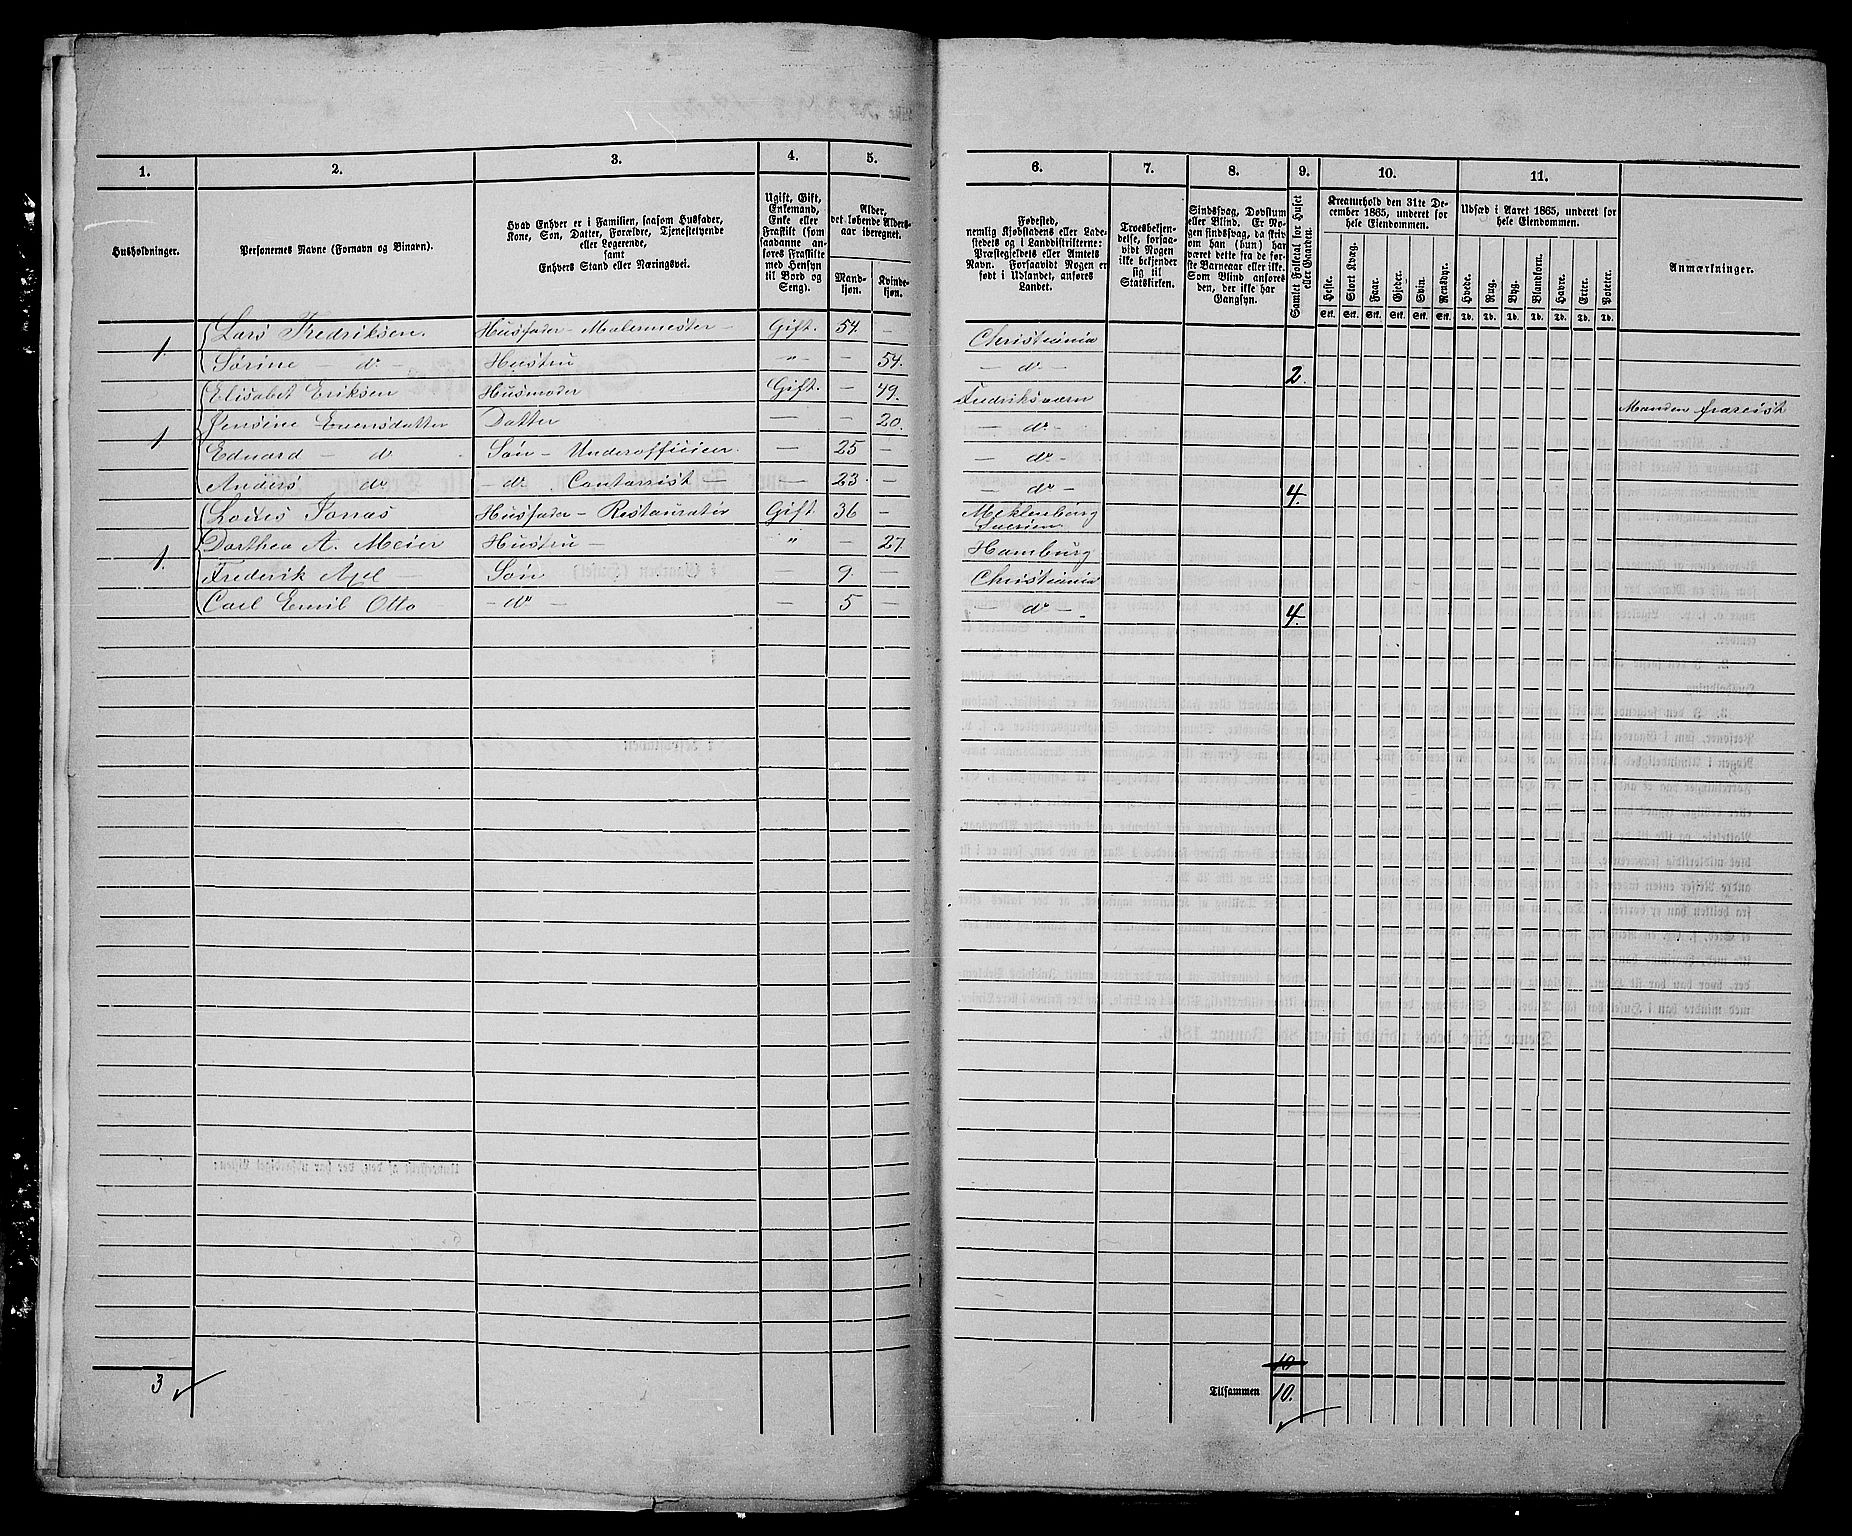 1. 2. 3. 4. 5. 6. 7. 8. 9. 10. 11.
Husholdninger.
Personernes Navne (Fornavn og Binavn).
Hvad Enhver er i Familien, saasom Husfader,
Kone, Søn, Datter, Forældre, Tjenestetyende
eller Logerende,
samt
Enhvers Stand eller Næringsvei.
Ugift, Gift,
Enkemand,
Enke eller
Fraskilt (som
saadanne an-
føres Fraskilte
med Hensyn
til Bord og
Seng).
Alder,
det løbende Alders-
aar iberegnet.
Mand-
kjøn.
Kvinde-
kjøn.
Fødested,
nemlig Kjøbstadens eller Lade-
stedets og i Landdistrikterne:
Præstegjeldets eller Amtets
Navn. Forsaavidt Nogen er
født i Udlandet, anføres
Landet.
Troesbekjen-
delse, forsaa-
vidt Nogen
ikke bekjender
sig til
Statskirken.
Sindssvag, Døvstum
eller Blind. Er No-
gen sindssvag, da skriv
om han (hun) har
været dette fra de før-
ste Barneaar eller ikke.
Som Blind anføres
den, der ikke har
Gangsyn.
Samlet Folketal for Huset
eller Gaarden.
Kreaturhold den 31te De-
cember 1865, underet for
hele Eiendommen.
Heste. Stort Kvæg. Faar. Gjeder. Svin. Rensdyr.
Stk. Stk. Stk. Stk. Stk. Stk.
Udsæd i Aaret 1865, underet for
hele Eiendommen.
Hvede. Rug. Byg. Blandkorn. Havre. Erter. Poteter.
Td. Td. Td. Td. Td. Td. Td.
Anmærkninger.
1. Lars Fredriksen. Husfader - Malermester - Gift. 54. - Christiania
Sørine - do - Hustru " - 54. - do - 2.
Elisabet Eriksen Husmoder Gift. - 49. Fredriksværn
1 Jensine Evensdatter Datter - - 20. - do - Manden frareist
Edvard - do Søn - Underofficier. - 25 - - do -
Anders do - do Contorrist - - 23. - - do - 4.
Louis Jonas Husfader - Restauratør Gift 36 - Meklenborg
1. Dorthea A. Meier Hustru - " - 27. Hamburg
Frederik Apel - Søn - 9. - Christiania
Carl Emil Otto - do - - 5 - do 4.
3
10
Tilsammen 10.